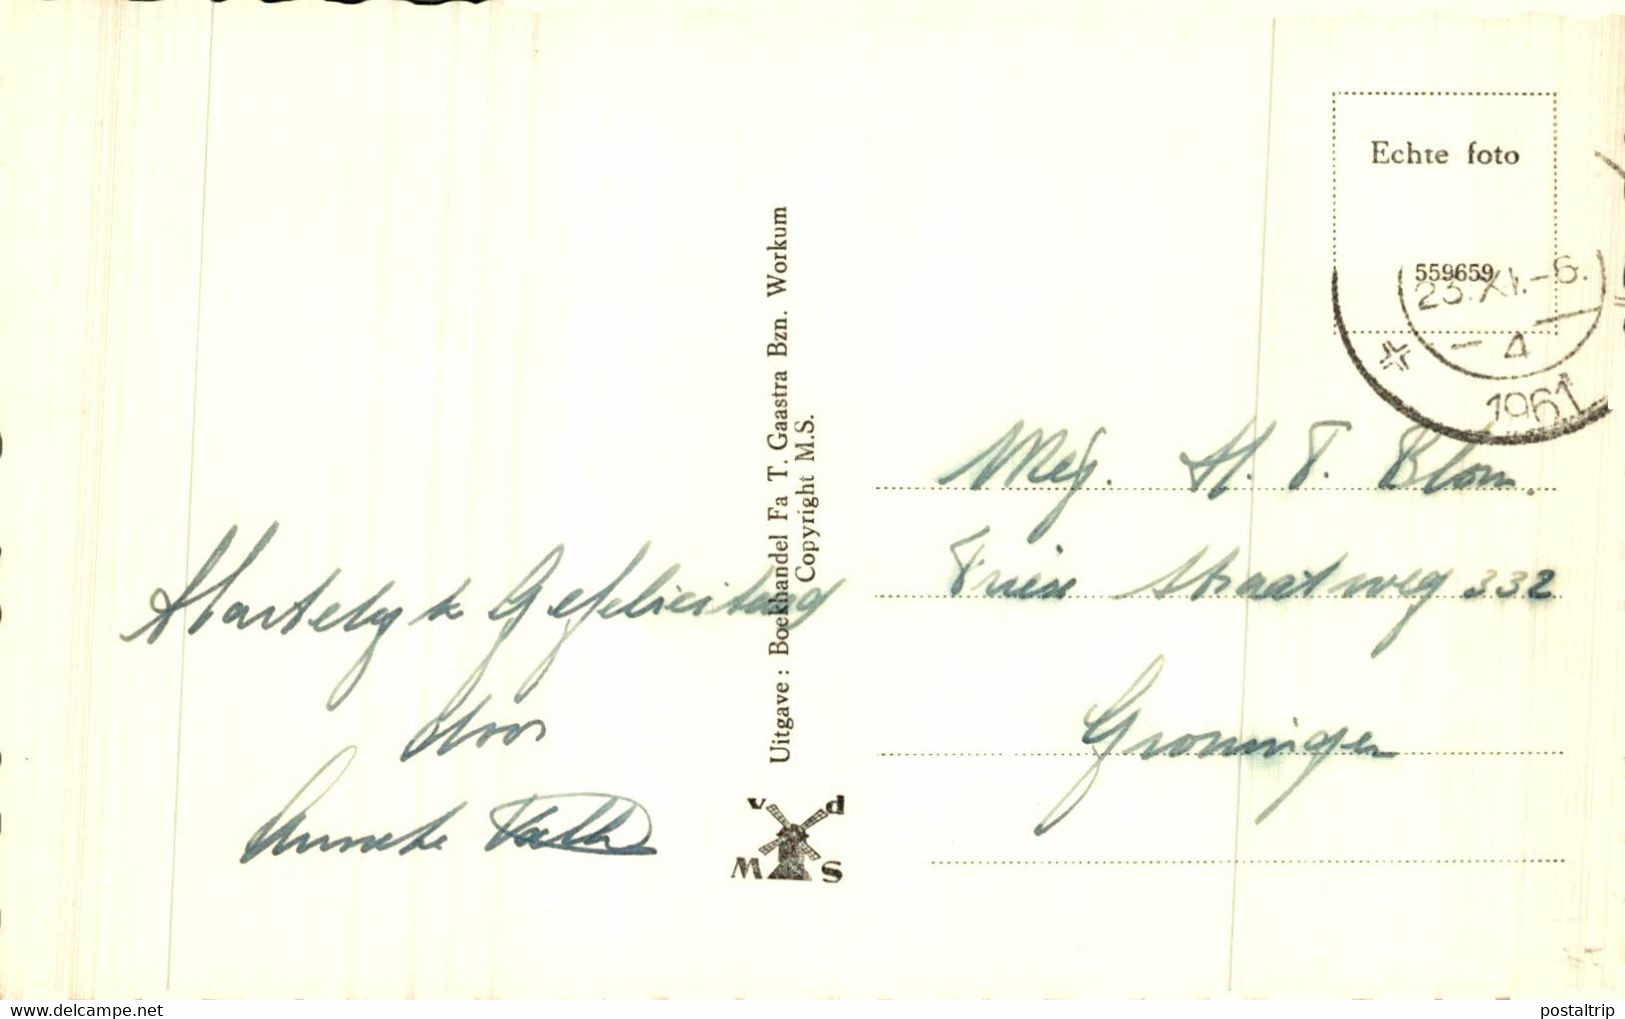 Echte foto
559659
23.XI.-6.
1961
Mej. H. T. Blom.
Friese Straatweg 332
Groningen
Hartelijk Gefeliciteerd
door
Anneke
Uitgave: Boekhandel Fa T. Gaastra Bzn. Workum
Copyright M.S.
v d
M S
www.delcampe.net
postaltrip